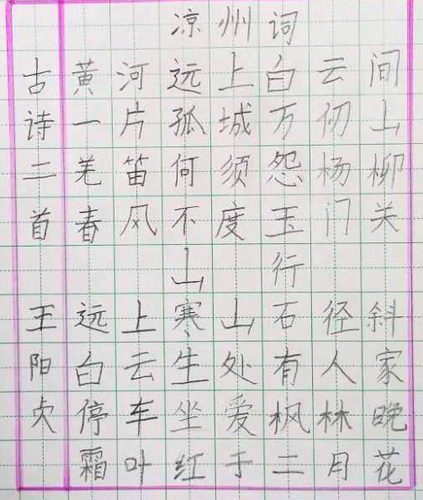 古诗二首 王阳
凉州词
黄河远上白云间
一片孤城万仞山
羌笛何须怨杨柳
春风不度玉门关
山行
远上寒山石径斜
白云生处有人家
停车坐爱枫林晚
霜叶红于二月花